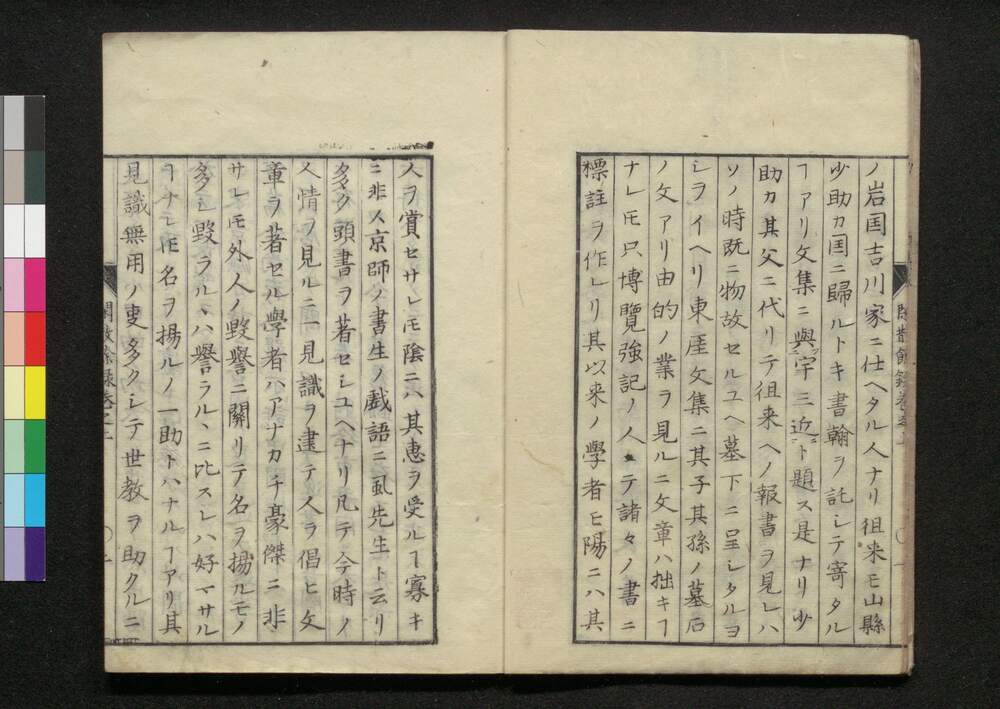 ノ岩国吉川家ニ仕ヘタル人ナリ徂来モ山縣
少助カ国ニ歸ルトキ書翰ヲ託シテ寄タル
ヿアリ文集ニ與宇三近ト題ス是ナリ少
助カ其父ニ代リテ徂来ヘノ報書ヲ見レハ
ソノ時既ニ物故セルユヘ墓下ニ呈シタルヨ
シヲイヘリ東厓文集ニ其子其孫ノ墓石
ノ文アリ由的ノ業ヲ見ルニ文章ハ拙キヿ
ナレ𪜈只博覽強記ノ人ニテ諸々ノ書ニ
標註ヲ作レリ其以来ノ學者モ陽ニハ其
人ヲ賞セサレ𪜈陰ニハ其惠ヲ受ルヿ寡キ
ニ非ス京師ノ書生ノ戲語ニ虱先生ト云リ
多ク頭書ヲ著セシユヘナリ凡テ今時ノ
人情ヲ見ルニ一見識ヲ建テ人ヲ倡ヒ文
章ヲ著セル學者ハアナカチ豪傑ニ非
サレ𪜈外人ノ毀譽ニ關リテ名ヲ揚ルモノ
多シ毀ラルヽハ譽ラルヽニ比スレハ好マサル
ヿナレ𪜈名ヲ揚ルノ一助トハナルヿアリ其
見識無用ノ叓多クシテ世教ヲ助クルニ